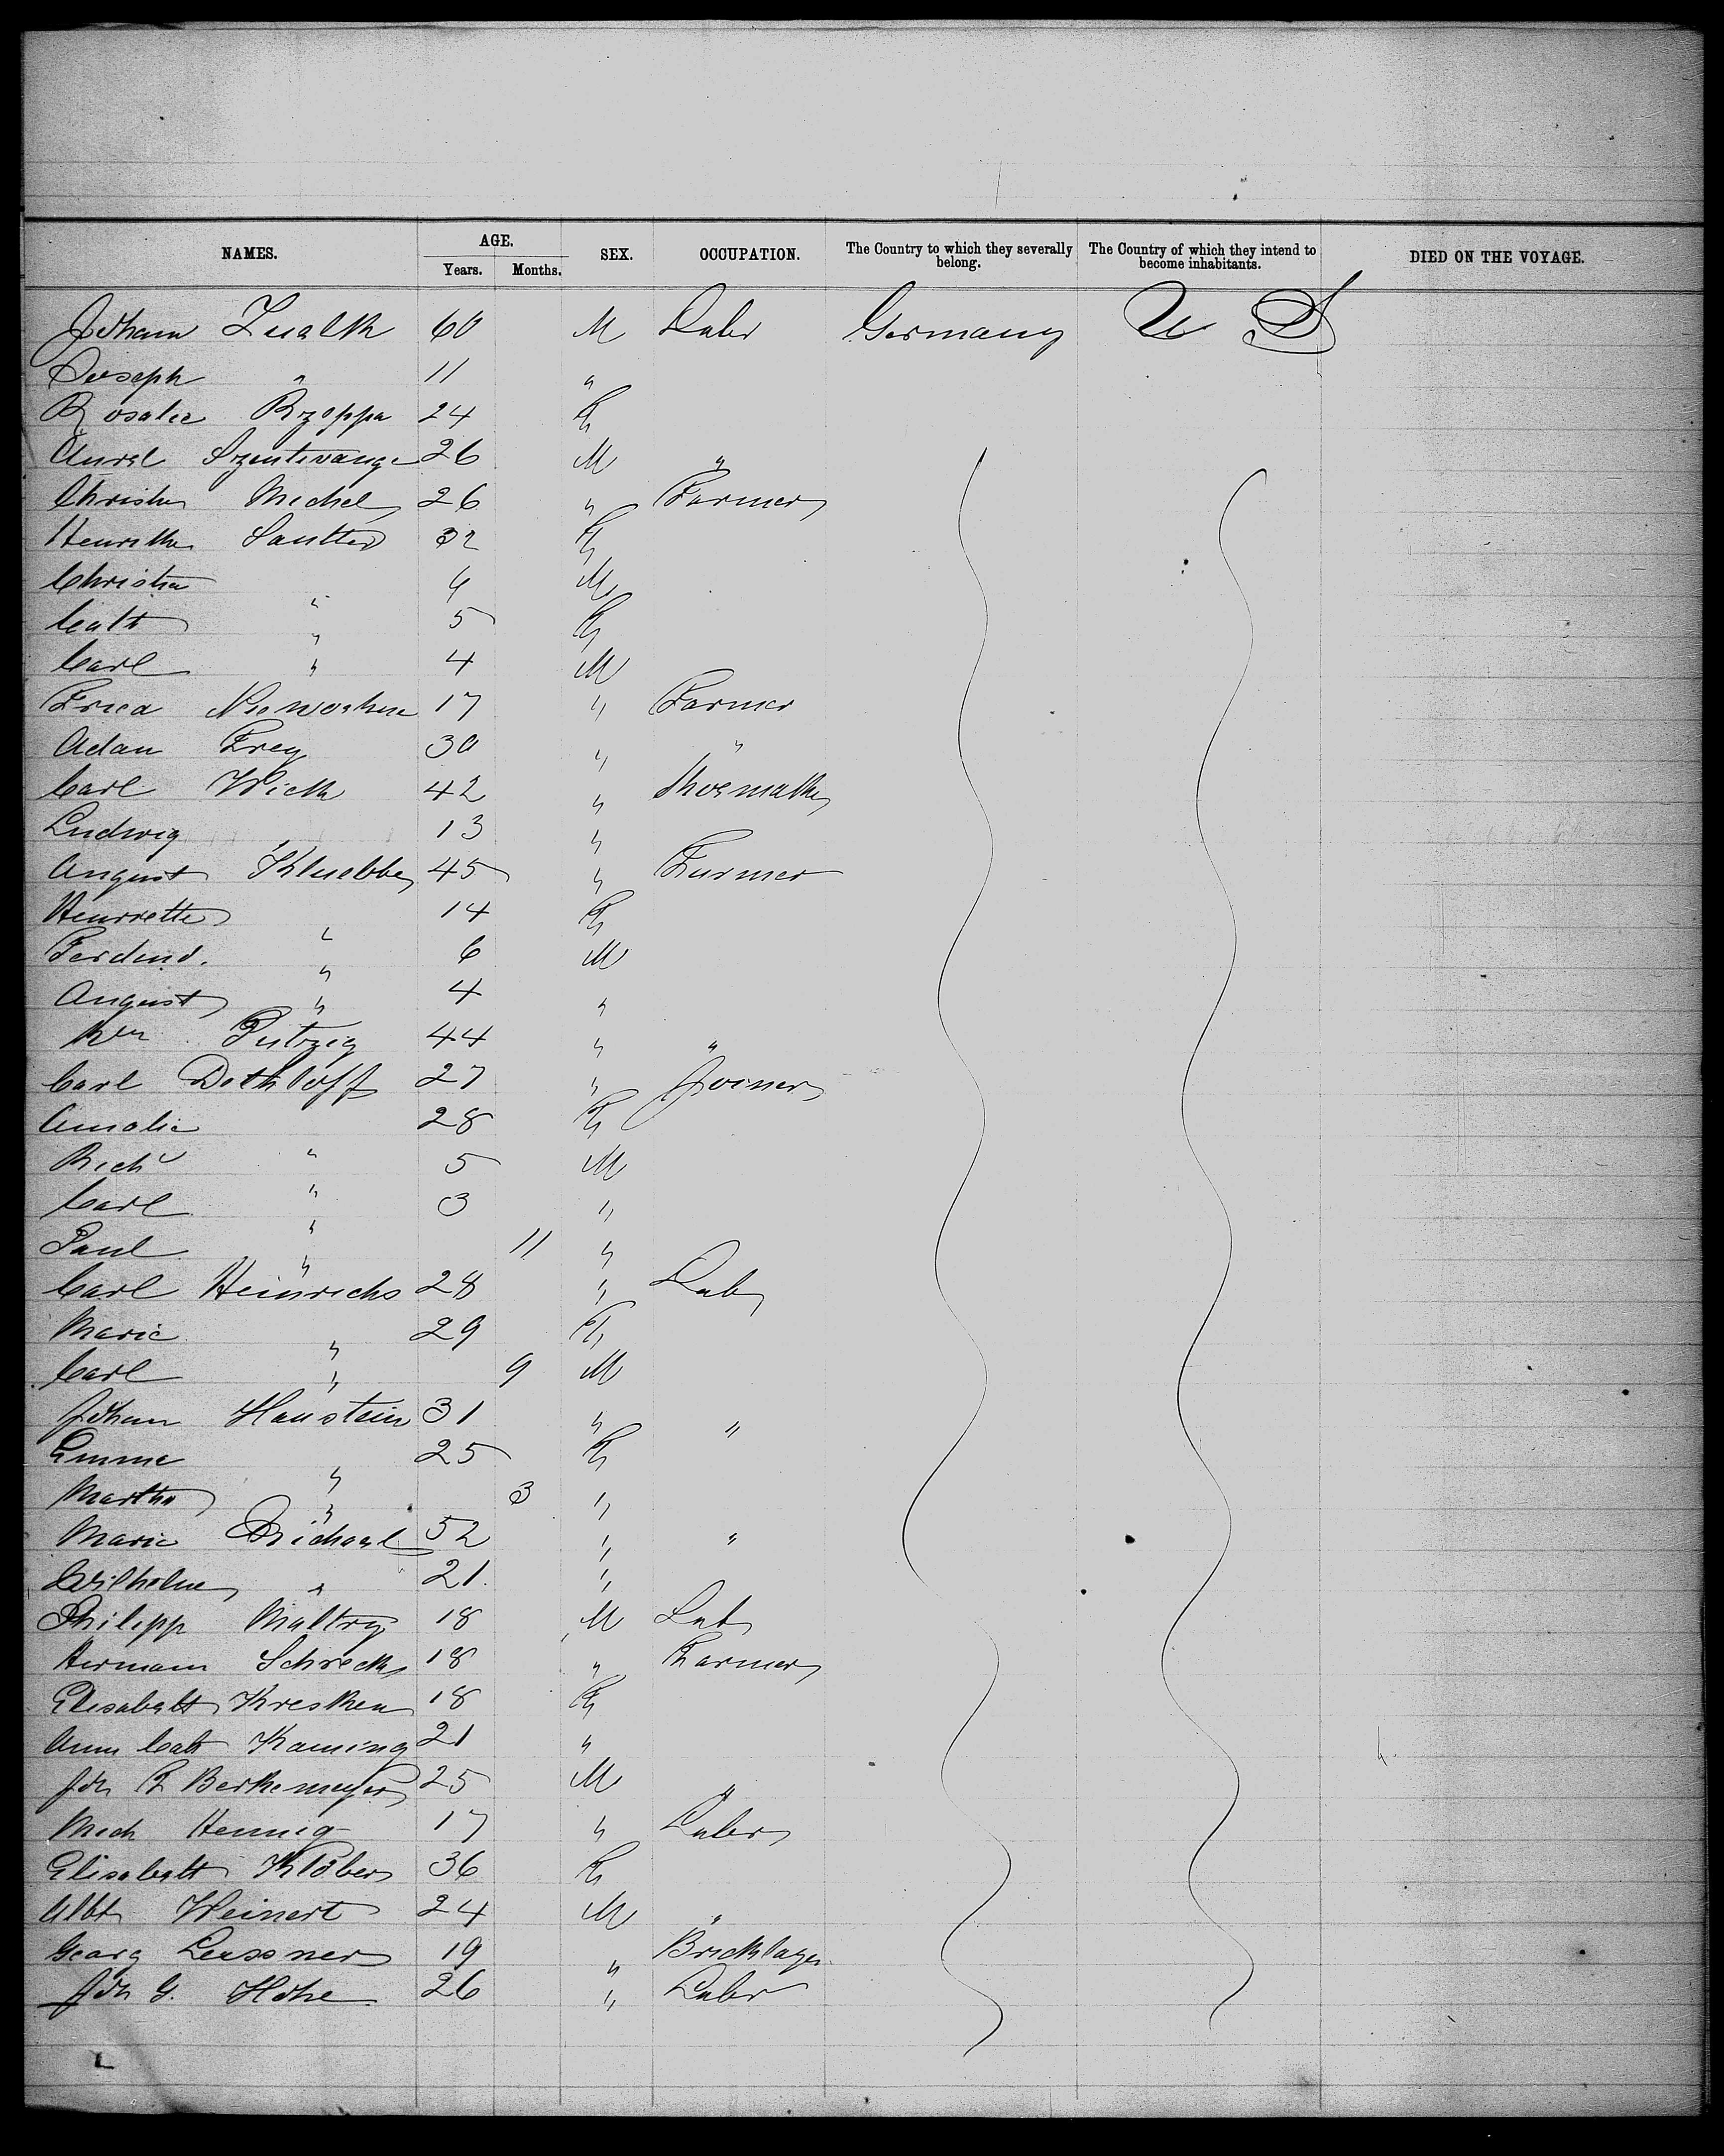 NAMES. AGE. SEX. OCCUPATION. The Country to which they severally belong. The Country of which they intend to become inhabitants. DIED ON THE VOYAGE.
Years. Months.
Joham Zualk 60 M Labr Germany U S
Joseph " 11 "
Rosalie Rzeppa 24 F
Aurel Szentivange 26 M "
Christn Michel 26 " Farmer
Henrike Sautter 32 F
Christn " 6 M
Cath " 5 F
Carl " 4 M
Fried 17 " Farmer
Adam Frey 30 " "
Carl Wick 42 " Shoemaker
Ludwig " 13 "
August Kluebbe 45 " Farmer
Henrrette " 14 F
Ferdind. " 6 M
August " 4 "
Wm Putzig 44 " "
Carl Dethloff 27 " Joiner
Amalie " 28 F
Richd " 5 M
Carl " 3 "
Paul " 11 "
Carl Heinrichs 28 " Lab
Marie " 29 F
Carl " 9 M
Joham Haustein 31 " "
Emma " 25 F
Martha " 3 "
Marie Michael 52 " "
Wilhelme " 21 "
Philipp Maltry 18 M Lab
Hermann Schreck 18 " Farmer
Elisabeth Kresken 18 F
Ann Cath Kaming 21 "
Joh F Berkemeyer 25 M "
Mich Hennig 17 " Labr
Elisabeth Klöber 36 F
Albt Weinert 24 M "
Georg Leussner 19 " Bricklayer
Joh G. Hohe 26 " Labr